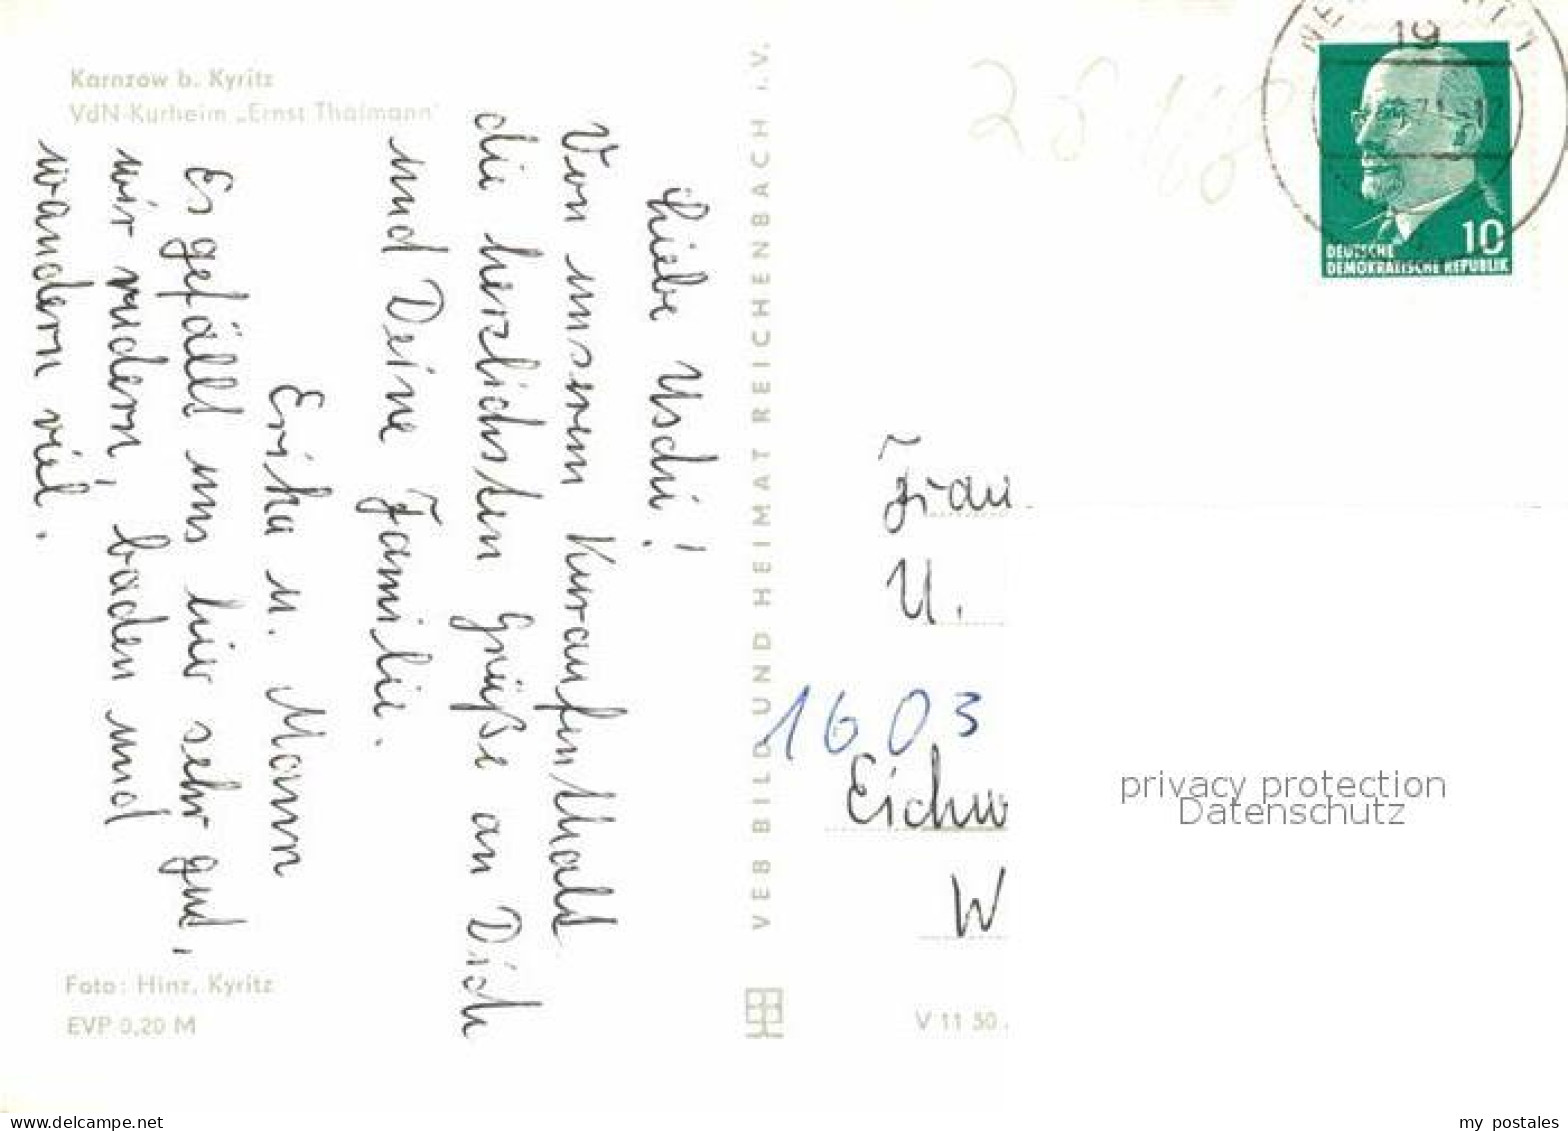 Karnzow b. Kyritz
VdN-Kurheim „Ernst Thälmann"
Liebe Uschi!
Von unserem Kuraufenthalt
die herzlichsten Grüße an Dich
und Deine Familie.
Erika u. Mann
Es gefällt uns hier sehr gut,
wir rudern, baden und
wandern viel.
Foto: Hinz, Kyritz
EVP 0,20 M
VEB BILD UND HEIMAT REICHENBACH i. V.
V 11 50
19
10
DEUTSCHE
DEMOKRATISCHE REPUBLIK
Frau
U.
1603
Eichw
W
privacy protection
Datenschutz
my postales